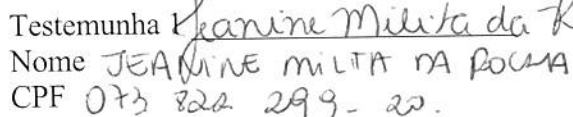 Testemunha 1 Jeanine Milita da R
Nome JEANINE MILITA DA ROCHA
CPF 073 822 299-20.